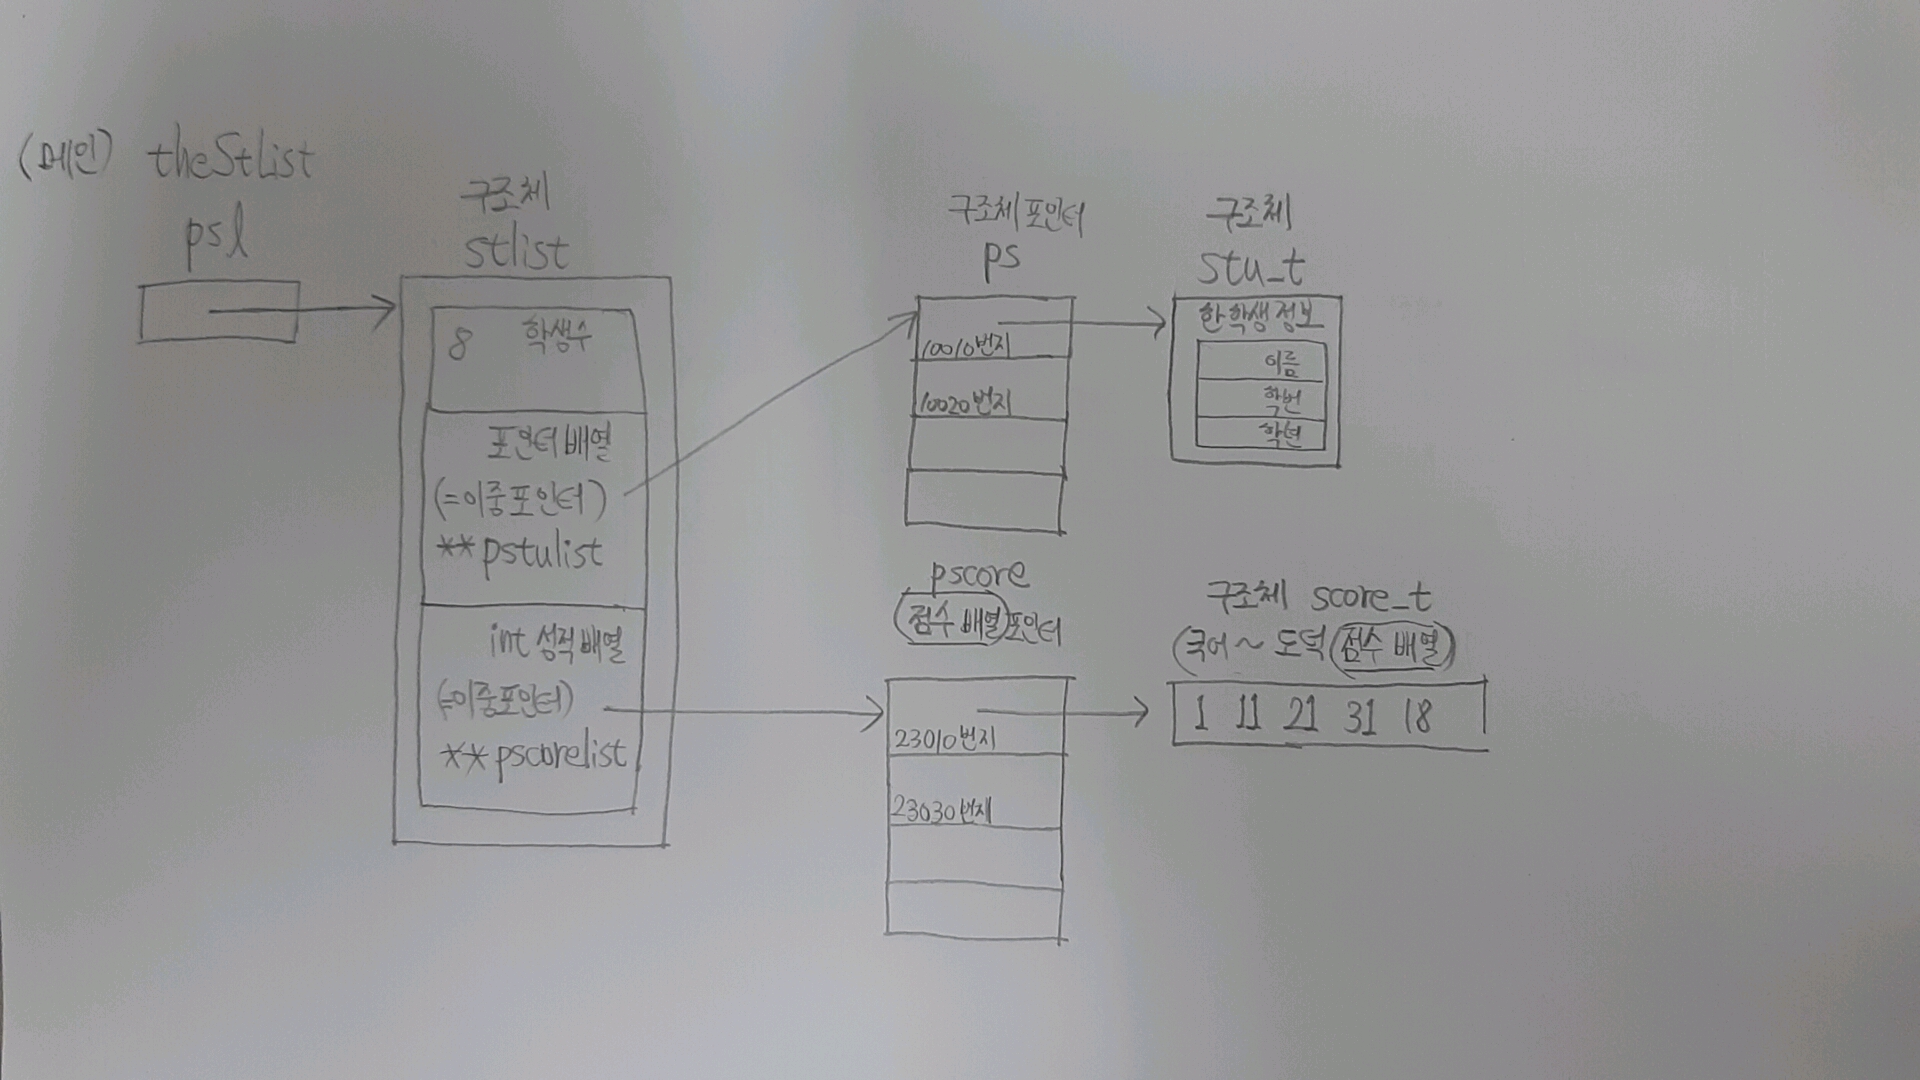 (메인) theStlist
psl
구조체
stlist
8 학생수
포인터 배열
(=이중포인터)
**pstulist
int 성적배열
(=이중포인터)
**pscorelist
구조체 포인터
ps
10010번지
10020번지
구조체
stu_t
한 학생 정보
이름
학번
학년
pscore
(점수 배열)포인터
23010번지
23030번지
구조체 score_t
(국어~도덕 (점수 배열))
1 11 21 31 18